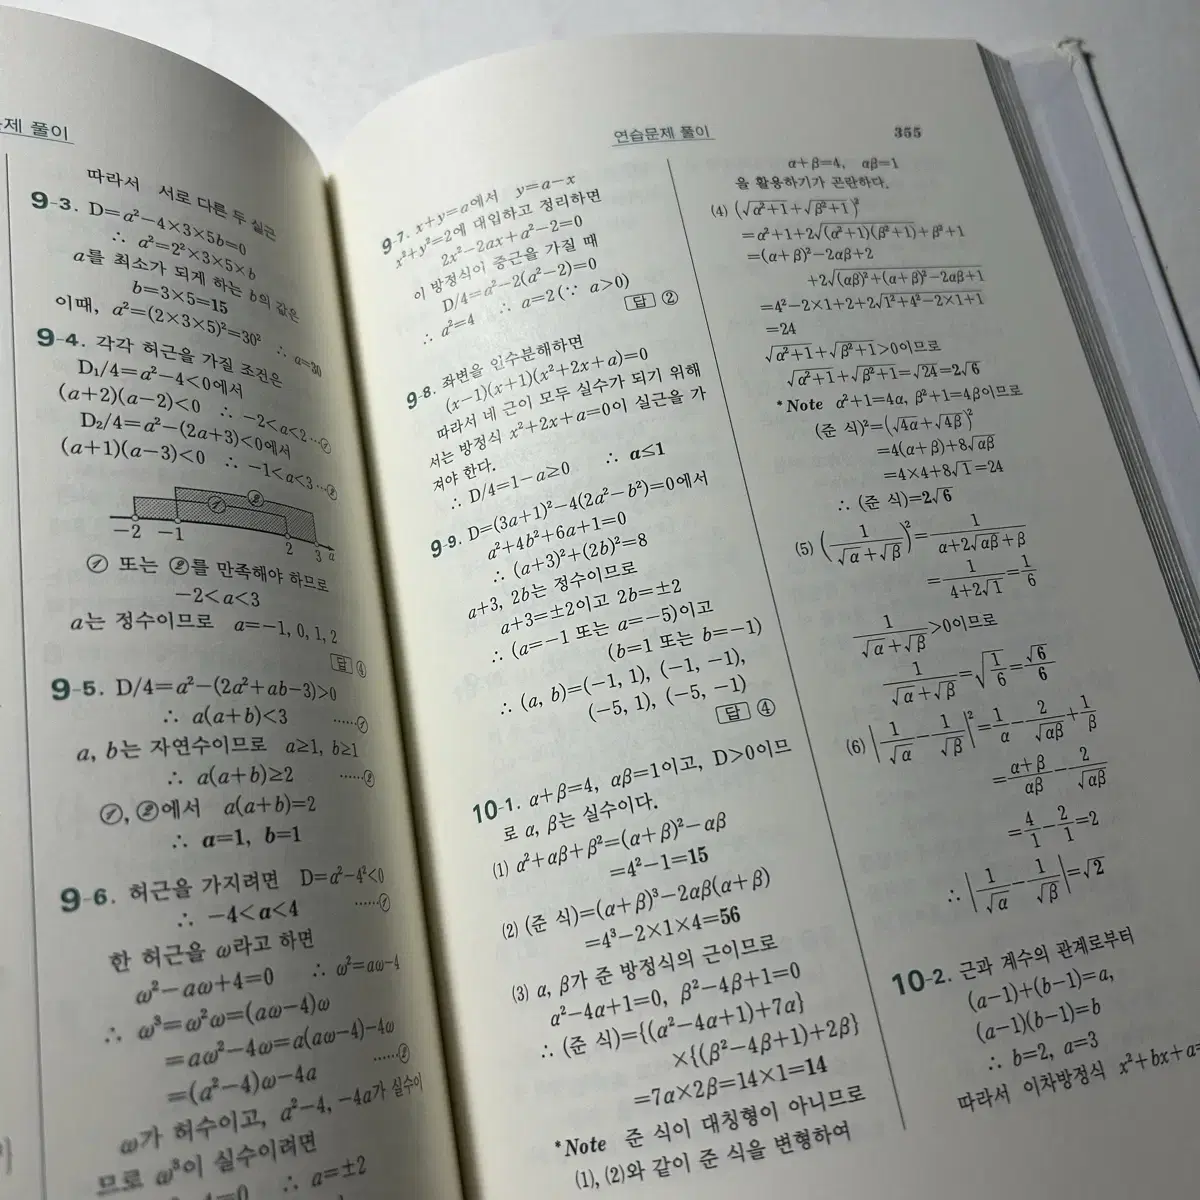 제 풀이
따라서 서로 다른 두 실근
9-3. D=a²-4×3×5b=0
∴ a²=2²×3×5×b
a를 최소가 되게 하는 b의 값은
b=3×5=15
이때, a²=(2×3×5)²=30² ∴ a=30
9-4. 각각 허근을 가질 조건은
D₁/4=a²-4<0에서
(a+2)(a-2)<0 ∴ -2<a<2 …①
D₂/4=a²-(2a+3)<0에서
(a+1)(a-3)<0 ∴ -1<a<3 …②
① ②
-2 -1 2 3 a
① 또는 ②를 만족해야 하므로
-2<a<3
a는 정수이므로 a=-1, 0, 1, 2
답 ④
9-5. D/4=a²-(2a²+ab-3)>0
∴ a(a+b)<3 ……①
a, b는 자연수이므로 a≥1, b≥1
∴ a(a+b)≥2 ……②
①, ②에서 a(a+b)=2
∴ a=1, b=1
9-6. 허근을 가지려면 D=a²-4²<0
∴ -4<a<4 ……①
한 허근을 ω라고 하면
ω²-aω+4=0 ∴ ω²=aω-4
∴ ω³=ω²ω=(aω-4)ω
=aω²-4ω=a(aω-4)-4ω
=(a²-4)ω-4a ……②
ω가 허수이고, a²-4, -4a가 실수이
므로 ω³이 실수이려면
-4=0 ∴ a=±2
연습문제 풀이 355
9-7. x+y=a에서 y=a-x
x²+y²=2에 대입하고 정리하면
2x²-2ax+a²-2=0
이 방정식이 중근을 가질 때
D/4=a²-2(a²-2)=0
∴ a²=4 ∴ a=2(∵ a>0)
답 ②
9-8. 좌변을 인수분해하면
(x-1)(x+1)(x²+2x+a)=0
따라서 네 근이 모두 실수가 되기 위해
서는 방정식 x²+2x+a=0이 실근을 가
져야 한다.
∴ D/4=1-a≥0 ∴ a≤1
9-9. D=(3a+1)²-4(2a²-b²)=0에서
a²+4b²+6a+1=0
∴ (a+3)²+(2b)²=8
a+3, 2b는 정수이므로
a+3=±2이고 2b=±2
∴ (a=-1 또는 a=-5)이고
(b=1 또는 b=-1)
∴ (a, b)=(-1, 1), (-1, -1),
(-5, 1), (-5, -1)
답 ④
10-1. α+β=4, αβ=1이고, D>0이므
로 α, β는 실수이다.
(1) α²+αβ+β²=(α+β)²-αβ
=4²-1=15
(2) (준 식)=(α+β)³-2αβ(α+β)
=4³-2×1×4=56
(3) α, β가 준 방정식의 근이므로
α²-4α+1=0, β²-4β+1=0
∴ (준 식)={(α²-4α+1)+7α}
×{(β²-4β+1)+2β}
=7α×2β=14×1=14
*Note 준 식이 대칭형이 아니므로
(1), (2)와 같이 준 식을 변형하여
α+β=4, αβ=1
을 활용하기가 곤란하다.
(4) (√(α²+1)+√(β²+1))²
=α²+1+2√((α²+1)(β²+1))+β²+1
=(α+β)²-2αβ+2
+2√((αβ)²+(α+β)²-2αβ+1)
=4²-2×1+2+2√(1²+4²-2×1+1)
=24
√(α²+1)+√(β²+1)>0이므로
√(α²+1)+√(β²+1)=√24=2√6
*Note α²+1=4α, β²+1=4β이므로
(준 식)²=(√4α+√4β)²
=4(α+β)+8√αβ
=4×4+8√1=24
∴ (준 식)=2√6
(5) (1/(√α+√β))²=1/(α+2√αβ+β)
=1/(4+2√1)=1/6
1/(√α+√β)>0이므로
1/(√α+√β)=√(1/6)=√6/6
(6) |1/√α-1/√β|²=1/α-2/√αβ+1/β
=(α+β)/αβ-2/√αβ
=4/1-2/1=2
∴ |1/√α-1/√β|=√2
10-2. 근과 계수의 관계로부터
(a-1)+(b-1)=a,
(a-1)(b-1)=b
∴ b=2, a=3
따라서 이차방정식 x²+bx+a=